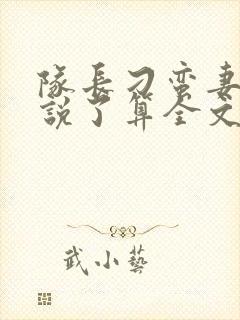 隊長刁蛮妻
說了算全文
武小藝